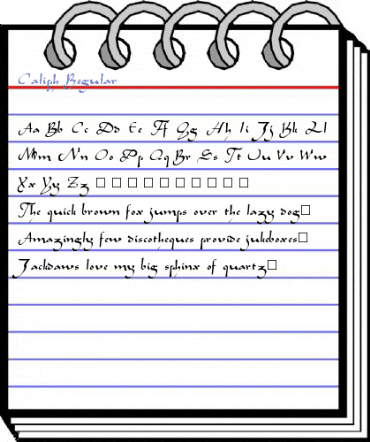 Caliph Regular
Aa Bb Cc Dd Ee Ff Gg Hh Ii Jj Kk Ll
Mm Nn Oo Pp Qq Rr Ss Tt Uu Vv Ww
Xx Yy Zz □ □ □ □ □ □ □ □ □ □
The quick brown fox jumps over the lazy dog□
Amazingly few discotheques provide jukeboxes□
Jackdaws love my big sphinx of quartz□